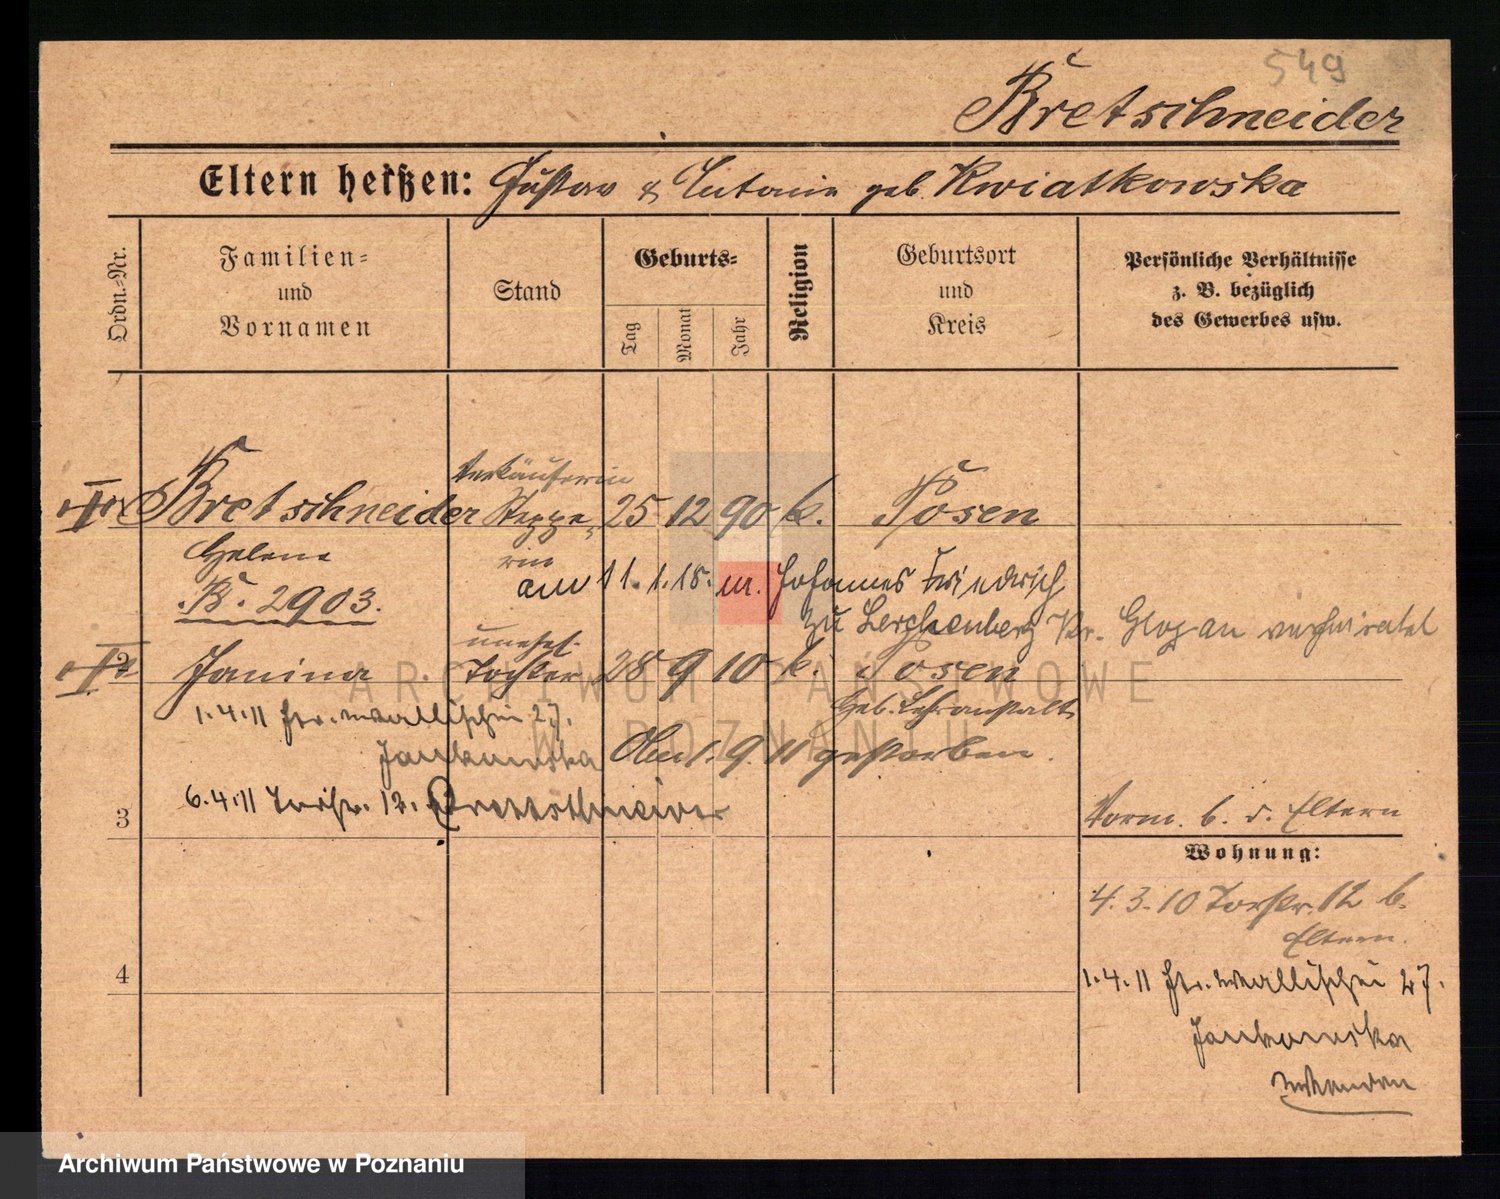 549
Bretschneider
Eltern heißen: Gustav & Antonie geb. Kwiatkowska
Ordn.-Nr.
Familien-
und
Vornamen
Stand
Geburts-
Tag
Monat
Jahr
Religion
Geburtsort
und
Kreis
Persönliche Verhältnisse
z. B. bezüglich
des Gewerbes usw.
Verkäuferin
1 Bretschneider Steppe- 25 12 90 k. Posen
Helene rin
am 11.1.18. m. Johannes Friedrich
B. 2903.
zu Lerchenberg Kr. Glogau verheiratet
unehel.
2 Janina Tochter 28 9 10 k. Posen
Geb. Lehranstalt
1.4.11 Gr. Wallischei 27.
Jankowska Am 1. 9. 11 gestorben.
6.4.11 Torstr. 12. Bretschneider
3
Vorm. b. d. Eltern
Wohnung:
4.3.10 Torstr. 12 b.
Eltern.
4
1.4.11 Gr. Wallischei 27.
Jankowska
ARCHIWUM PAŃSTWOWE
W POZNANIU
Archiwum Państwowe w Poznaniu